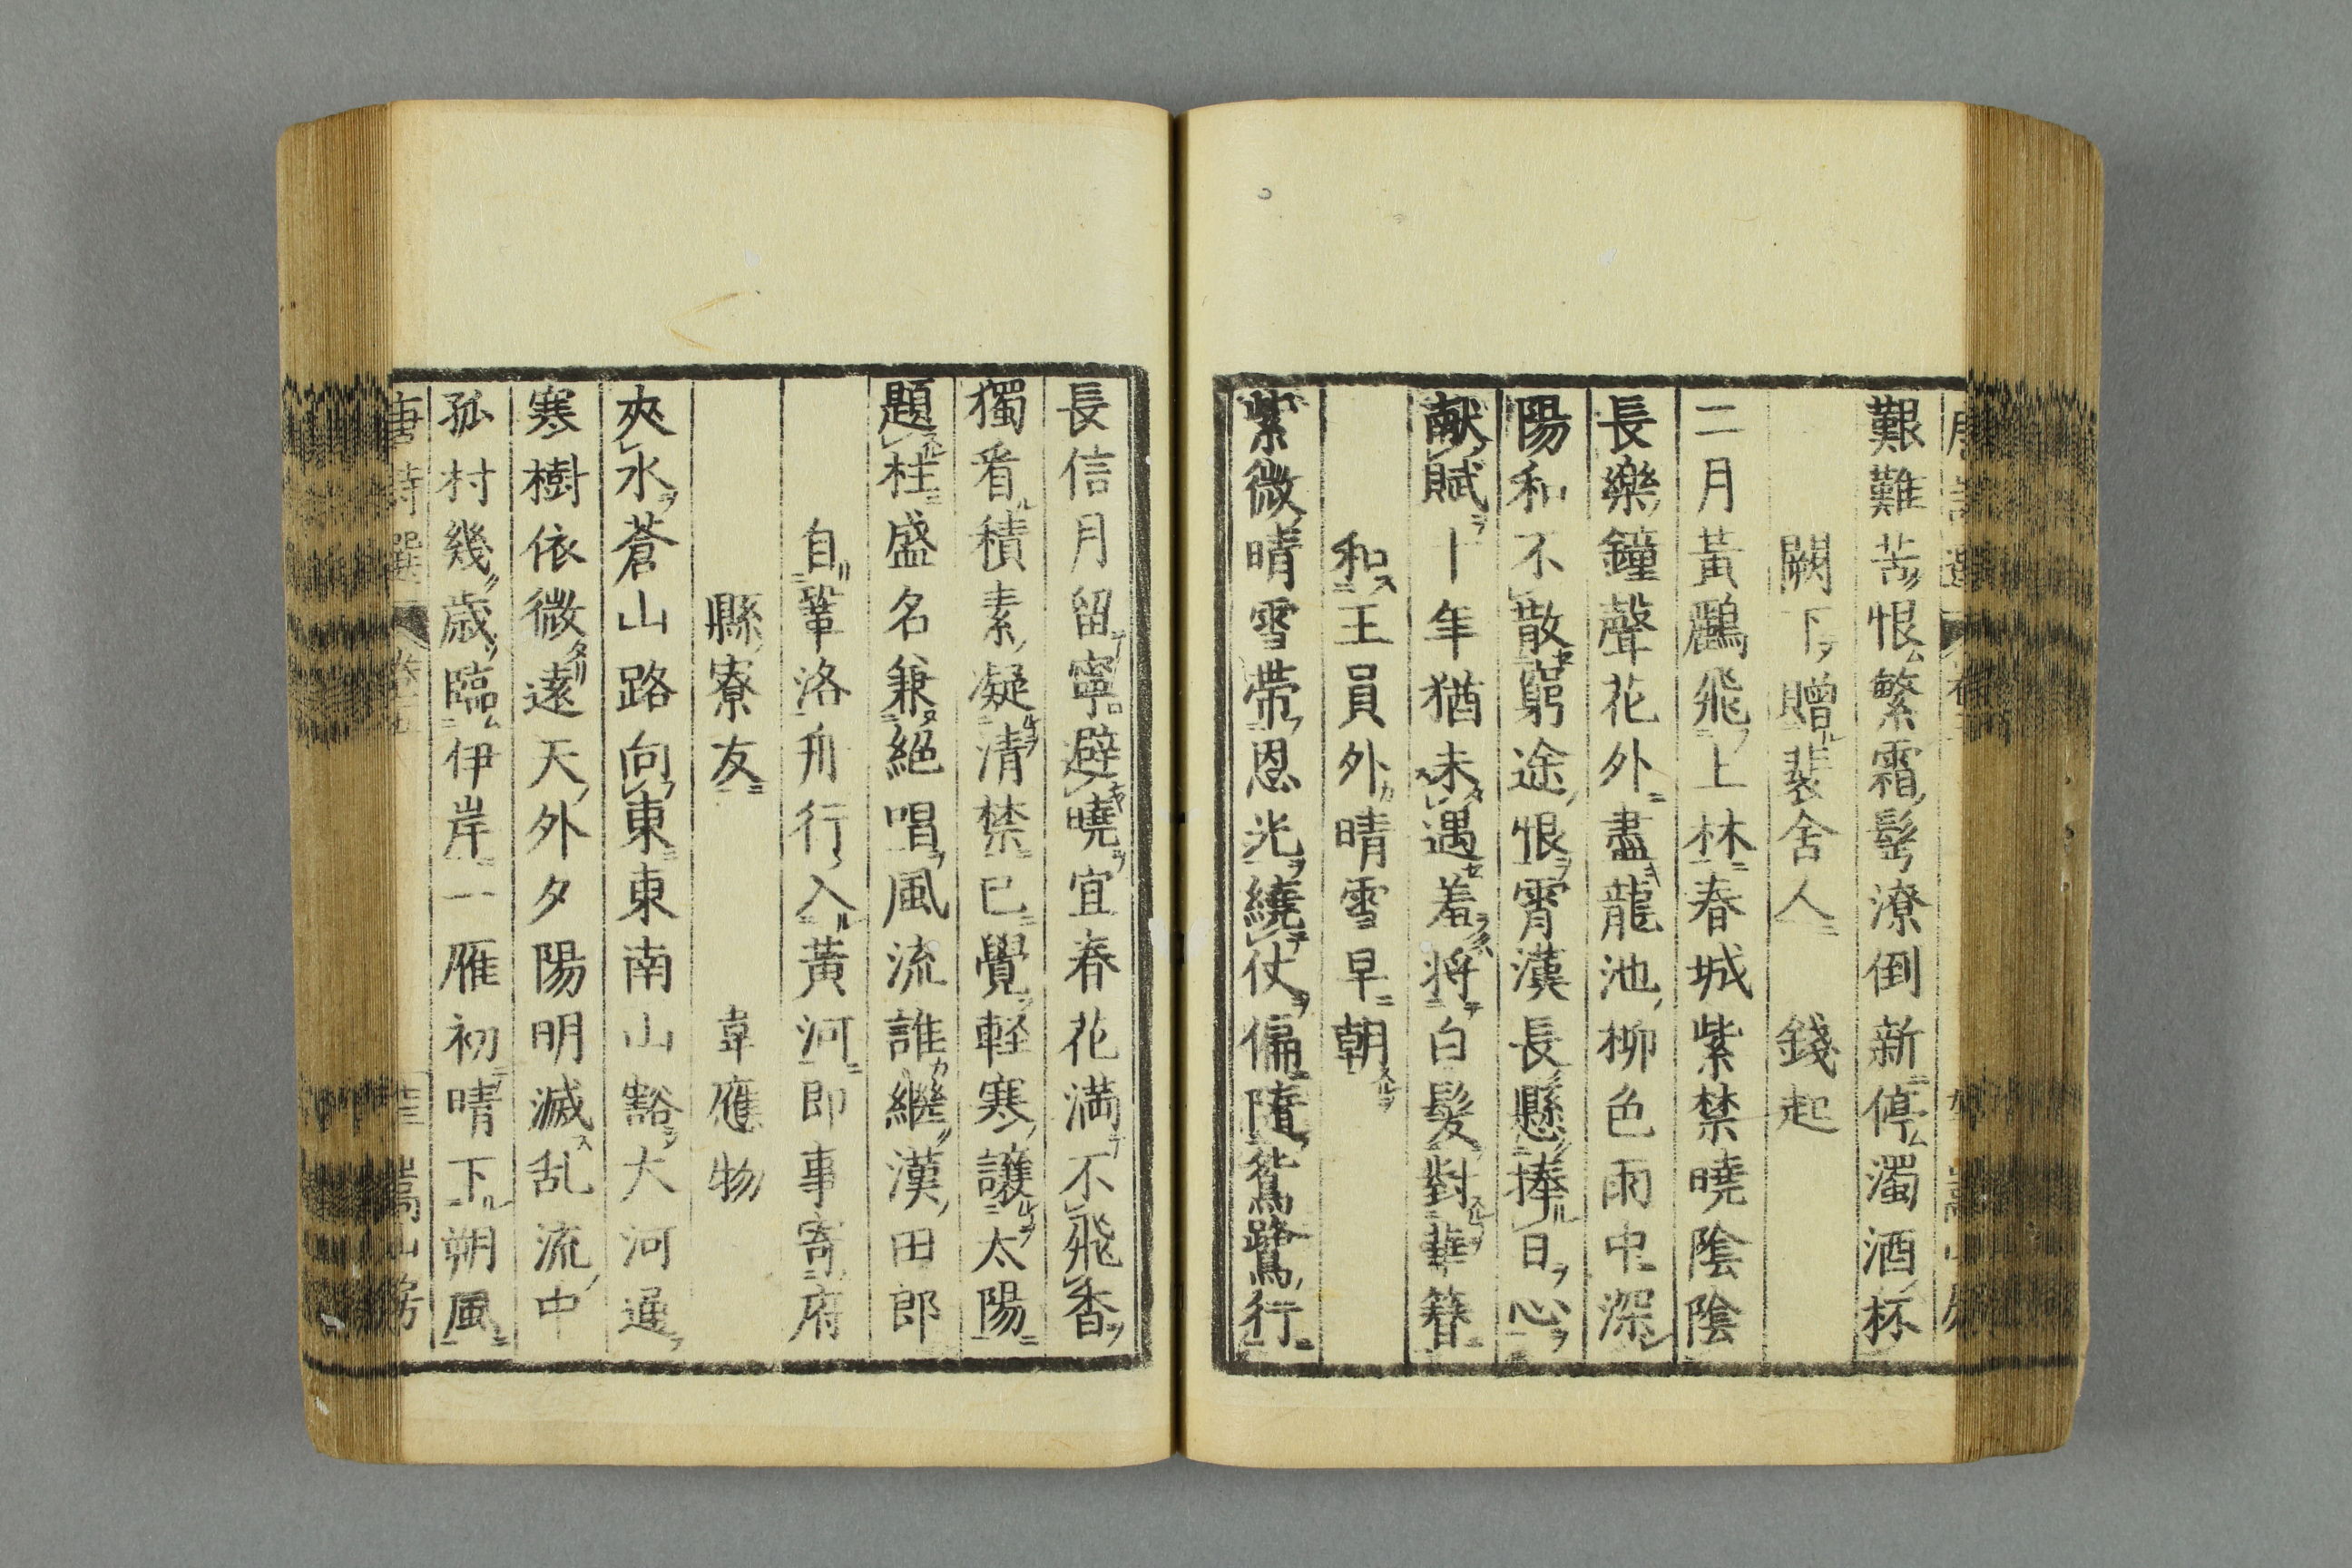 艱難苦恨繁霜鬂潦倒新停濁酒杯
闕下贈裴舍人　錢起
二月黃鸝飛上林春城紫禁曉陰陰
長樂鐘聲花外盡龍池柳色雨中深
陽和不散窮途恨霄漢長懸捧日心
献賦十年猶未遇羞将白髮對華簪
和王員外晴雪早朝
紫微晴雪帶恩光繞仗偏隨鴛鷺行
長信月留寧避曉宜春花満不飛香
獨看積素凝清禁已覺軽寒讓太陽
題柱盛名兼絕唱風流誰繼漢田郎
自鞏洛舟行入黃河即事寄府
縣寮友　韋應物
夾水蒼山路向東東南山豁大河通
寒樹依微遠天外夕陽明滅乱流中
孤村幾歲臨伊岸一雁初晴下朔風
唐詩選　嵩山房